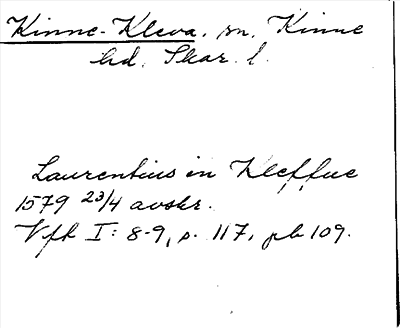 Kinne-Kleva, sn, Kinne
hd, Skar. l.
Laurentius in Kleffue
1579 23/4 avskr.
Vfk I: 8-9, s. 117, pb 109.